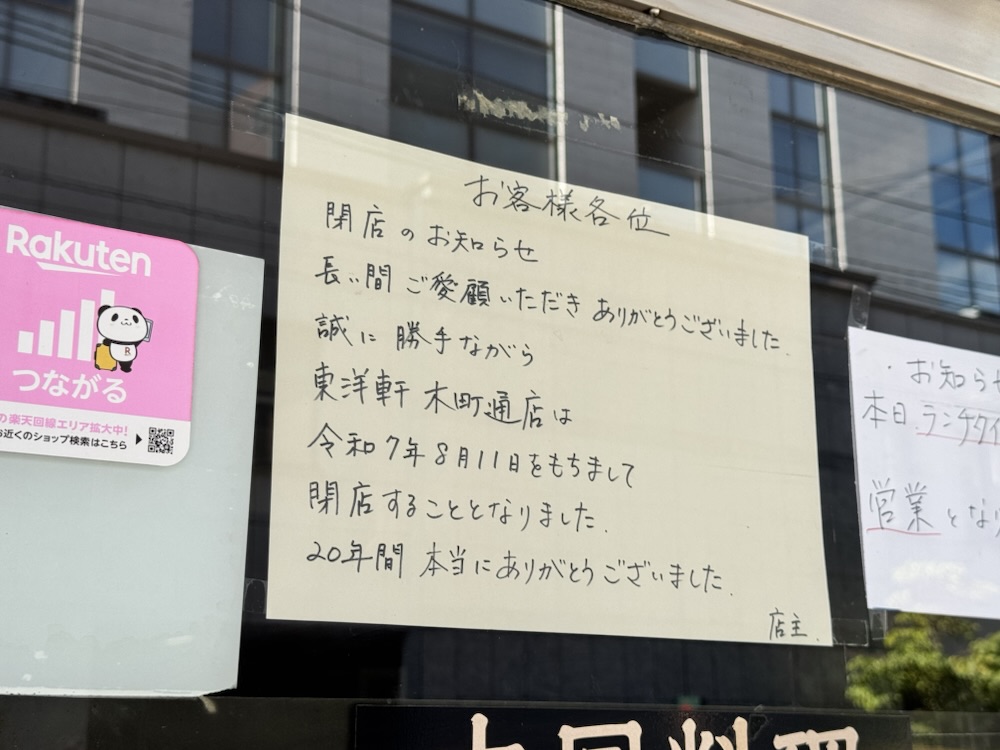 お客様各位
閉店のお知らせ
長い間ご愛顧いただきありがとうございました.
誠に勝手ながら
東洋軒 木町通店は
令和7年8月11日をもちまして
閉店することとなりました.
20年間 本当にありがとうございました.
店主.
Rakuten
R
つながる
の楽天回線エリア拡大中!
お近くのショップ検索はこちら
・お知らせ
本日.ランチタイ
営業となり
中国料理